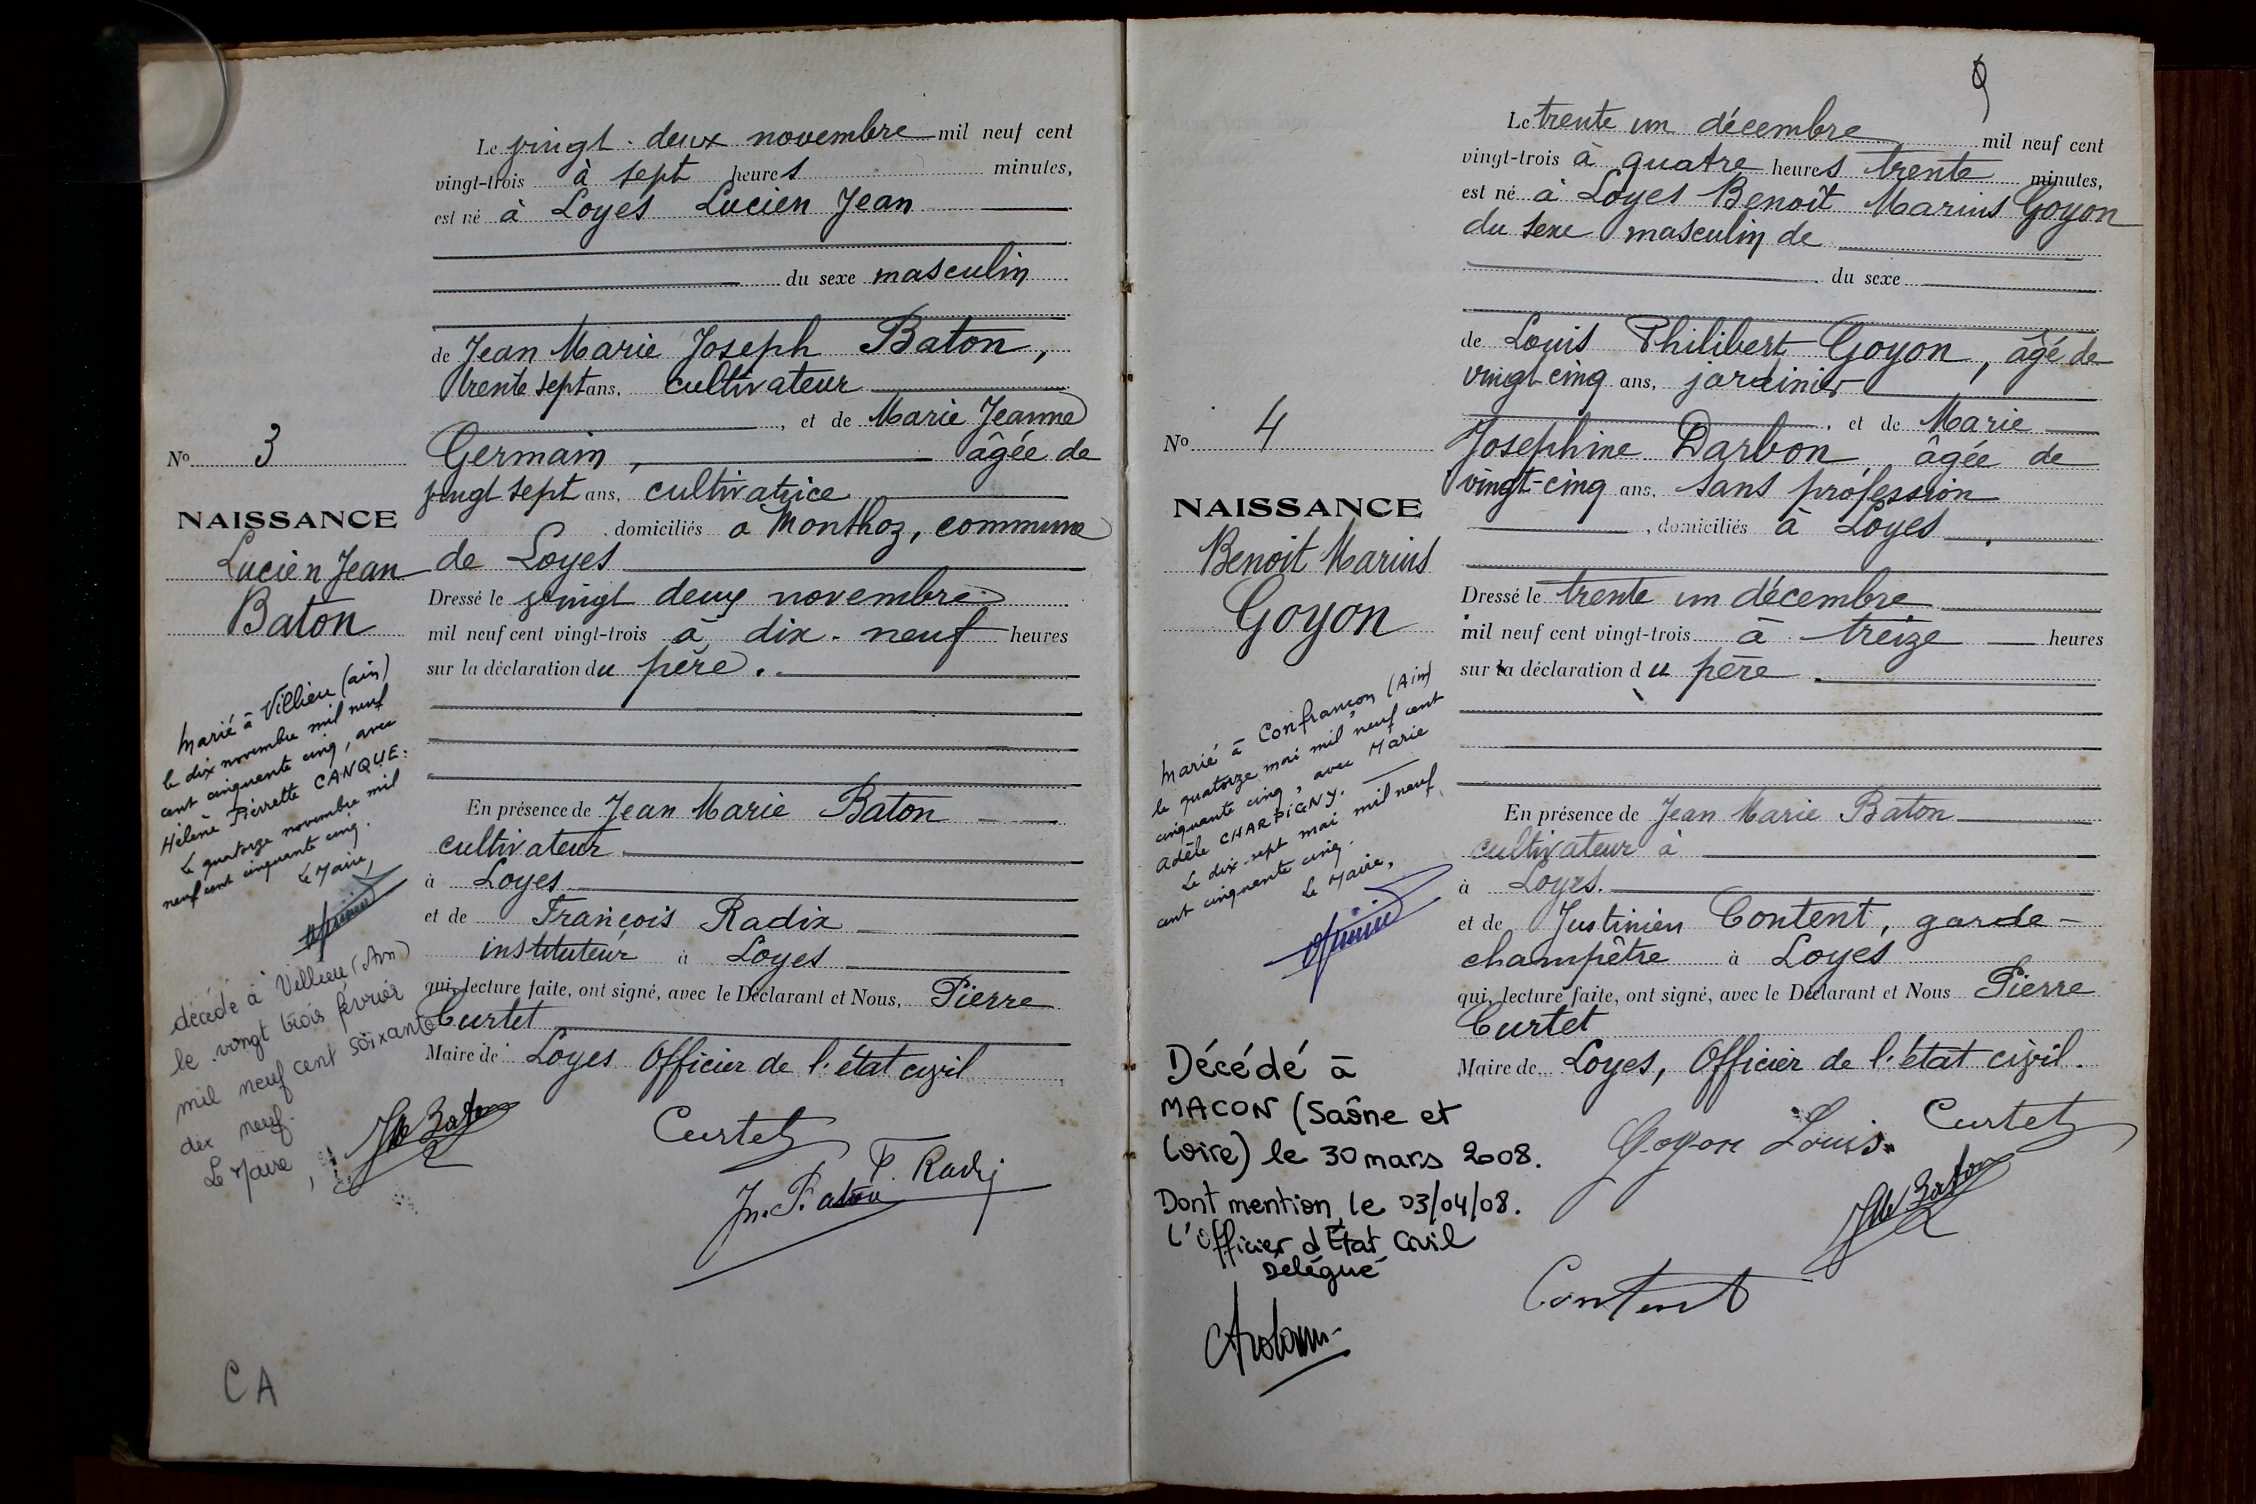 Le vingt-deux novembre mil neuf cent
vingt-trois à sept heures minutes,
est né à Loyes Lucien Jean
du sexe masculin
de Jean Marie Joseph Baton,
trente sept ans, cultivateur
, et de Marie Jeanne
Germain, âgée de
vingt sept ans, cultivatrice
, domiciliés a Monthoz, commune
de Loyes
Dressé le vingt deux novembre
mil neuf cent vingt-trois à dix-neuf heures
sur la déclaration du père.
En présence de Jean Marie Baton
cultivateur
à Loyes
et de François Radix
instituteur à Loyes
qui, lecture faite, ont signé, avec le Déclarant et Nous, Pierre
Curtet
Maire de Loyes Officier de l'état civil
Curtet
Jn. Baton
F. Radix
JM Baton
No 3
NAISSANCE
Lucien Jean
Baton
Marié à Villieu (ain)
le dix novembre mil neuf
cent cinquante cinq, avec
Hélène Pierrette CANQUE.
Le quatorze novembre mil
neuf cent cinquante cinq.
Le Maire,
décédé à Villieu (Ain)
le vingt trois février
mil neuf cent soixante
dix neuf.
Le Maire,
CA
9
Le trente un décembre mil neuf cent
vingt-trois à quatre heures trente minutes,
est né à Loyes Benoît Marius Goyon
du sexe masculin de
du sexe
de Louis Philibert Goyon, âgé de
vingt cinq ans, jardinier
, et de Marie
Josephine Darbon, âgée de
vingt-cinq ans, sans profession
, domiciliés à Loyes
Dressé le trente un décembre
mil neuf cent vingt-trois à treize heures
sur la déclaration du père.
En présence de Jean Marie Baton
cultivateur à
à Loyes.
et de Justinien Content, garde-
champêtre à Loyes
qui, lecture faite, ont signé, avec le Déclarant et Nous Pierre
Curtet
Maire de Loyes, Officier de l'état civil.
Goyon Louis
Curtet
JM Baton
Content
No 4
NAISSANCE
Benoit Marius
Goyon
Marié à Confrançon (Ain)
le quatorze mai mil neuf cent
cinquante cinq, avec Marie
Adèle CHARPIGNY.
Le dix-sept mai mil neuf
cent cinquante cinq.
Le Maire,
Décédé à
MACON (Saône et
Loire) le 30 mars 2008.
Dont mention, le 03/04/08.
L'Officier d'État Civil
Délégué